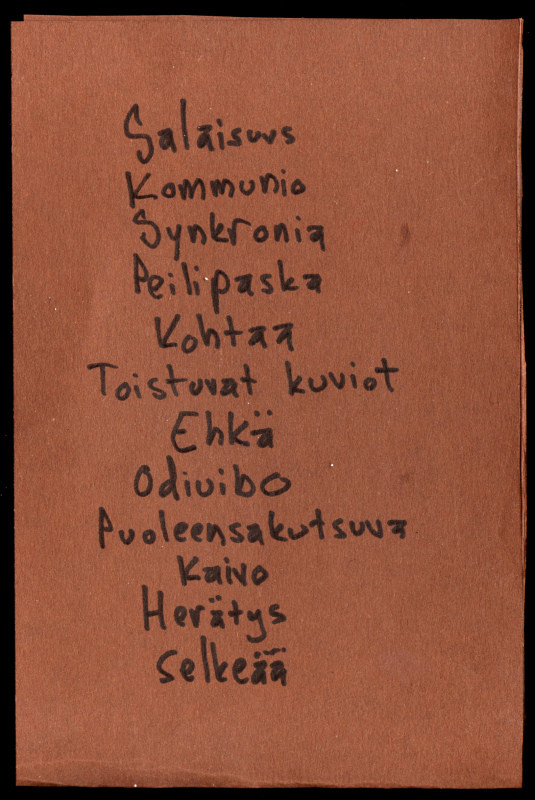 Salaisuus
Kommunio
Synkronia
Peilipaska
Kohtaa
Toistuvat kuviot
Ehkä
Odivibo
Puoleensakutsuva
Kaivo
Herätys
Selkeää